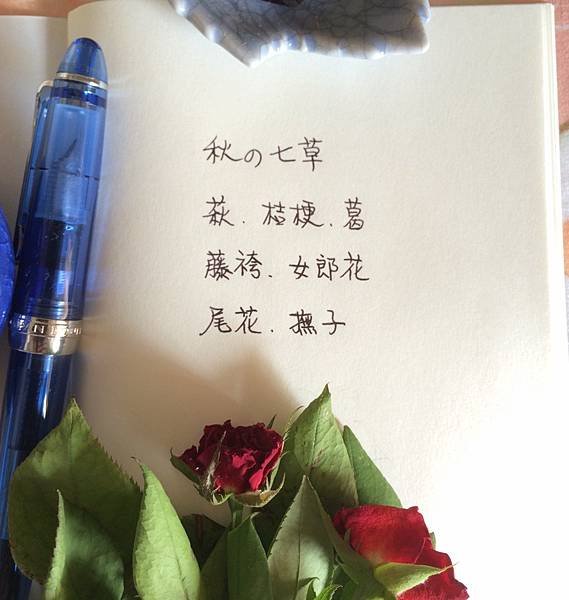 秋の七草
萩、桔梗、葛
藤袴、女郎花
尾花、撫子